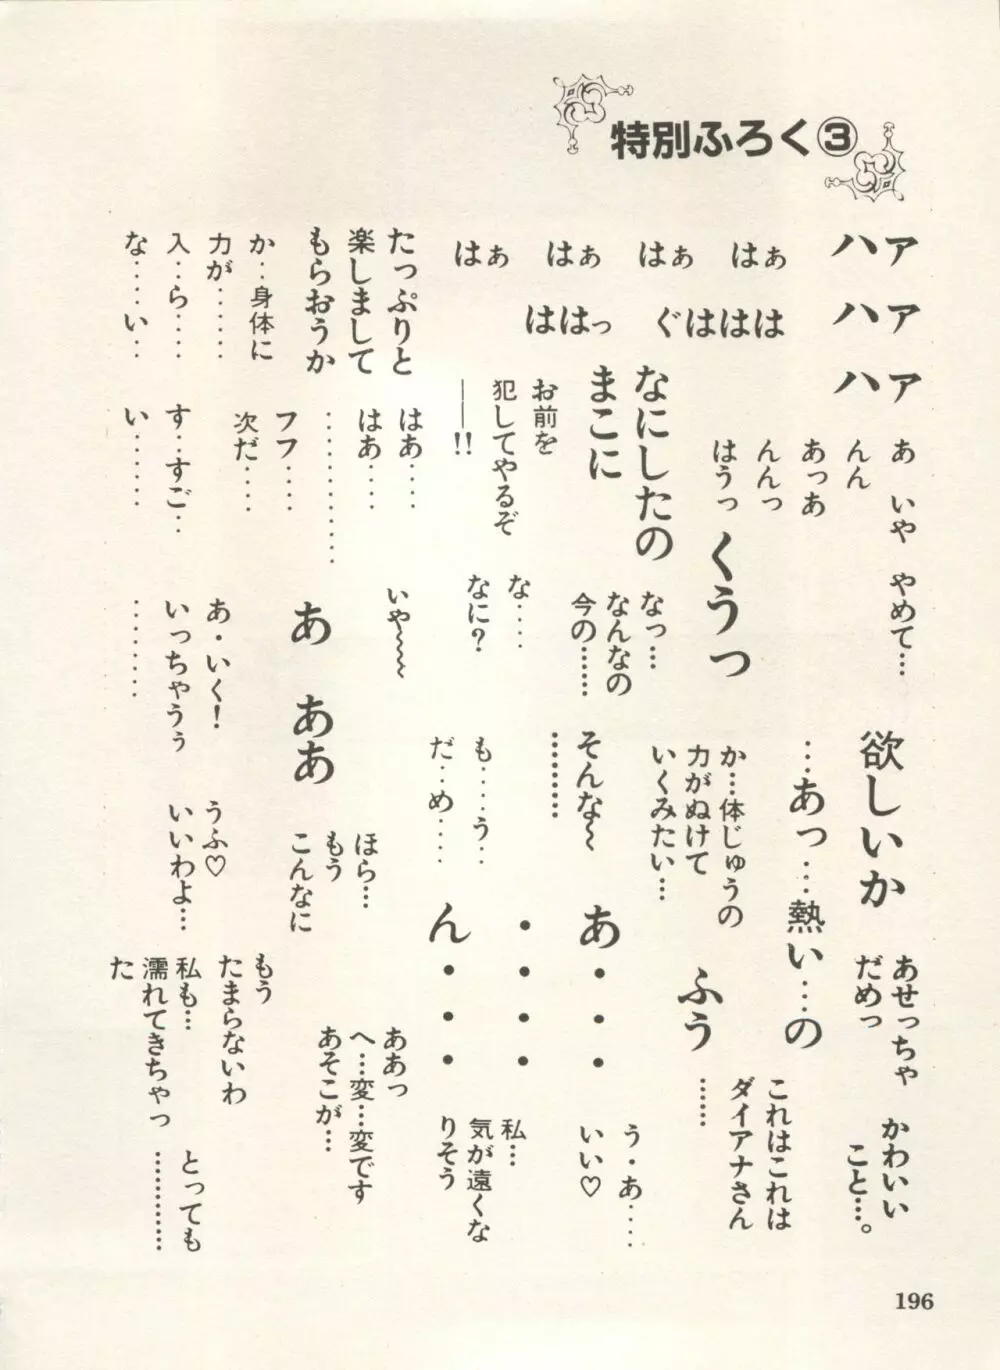 特別ふろく③
ハァ
ハァ
ハァ
はぁ
はぁ
はぁ
はぁ
ぐははは
ははっ
たっぷりと
楽しまして
もらおうか
か‥身体に
力が……
入‥ら……
な……い‥
あ いや やめて…
んん
あっあ
んんっ
はうっ
くうっ
なにしたの
まこに
お前を
犯してやるぞ
――!!
はあ……
はあ……
…………………
フフ……
次だ……
す‥すご‥
い………
なっ…
なんなの
今の……
な……
なに?
いや～～～
あ ああ
あ・いく!
いっちゃうぅ
………
欲しいか
…あっ…熱い…の
か…体じゅうの
力がぬけて
いくみたい…
そんな～
………
も……う‥
だ‥め……
ほら…
もう
こんなに
うふ♡
いいわよ…
あせっちゃ
だめっ
かわいい
こと…。
これはこれは
ダイアナさん
ふう
……
あ・・・
・・・・
ん・・・
う・あ……
いい♡
私…
気が遠くな
りそう
ああっ
へ…変…変です
あそこが…
もう
たまらないわ
私も…
濡れてきちゃっ
た
とっても
…………
196